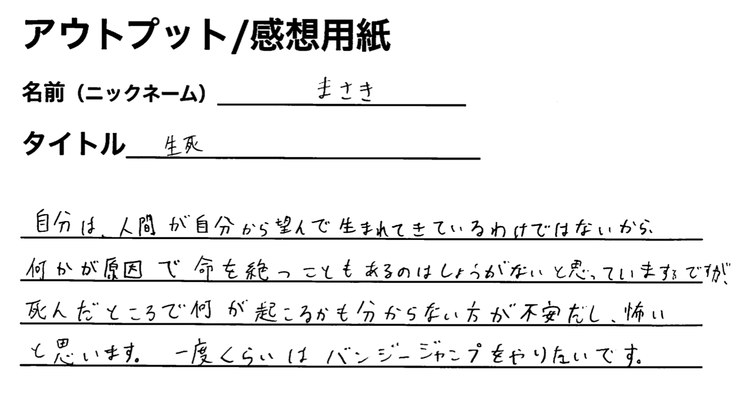 アウトプット/感想用紙
名前（ニックネーム） まさき
タイトル 生死
自分は、人間が自分から望んで生まれてきているわけではないから、
何かが原因で命を絶つこともあるのはしょうがないと思っていますですが、
死んだところで何が起こるかも分からない方が不安だし、怖い
と思います。 一度くらいはバンジージャンプをやりたいです。